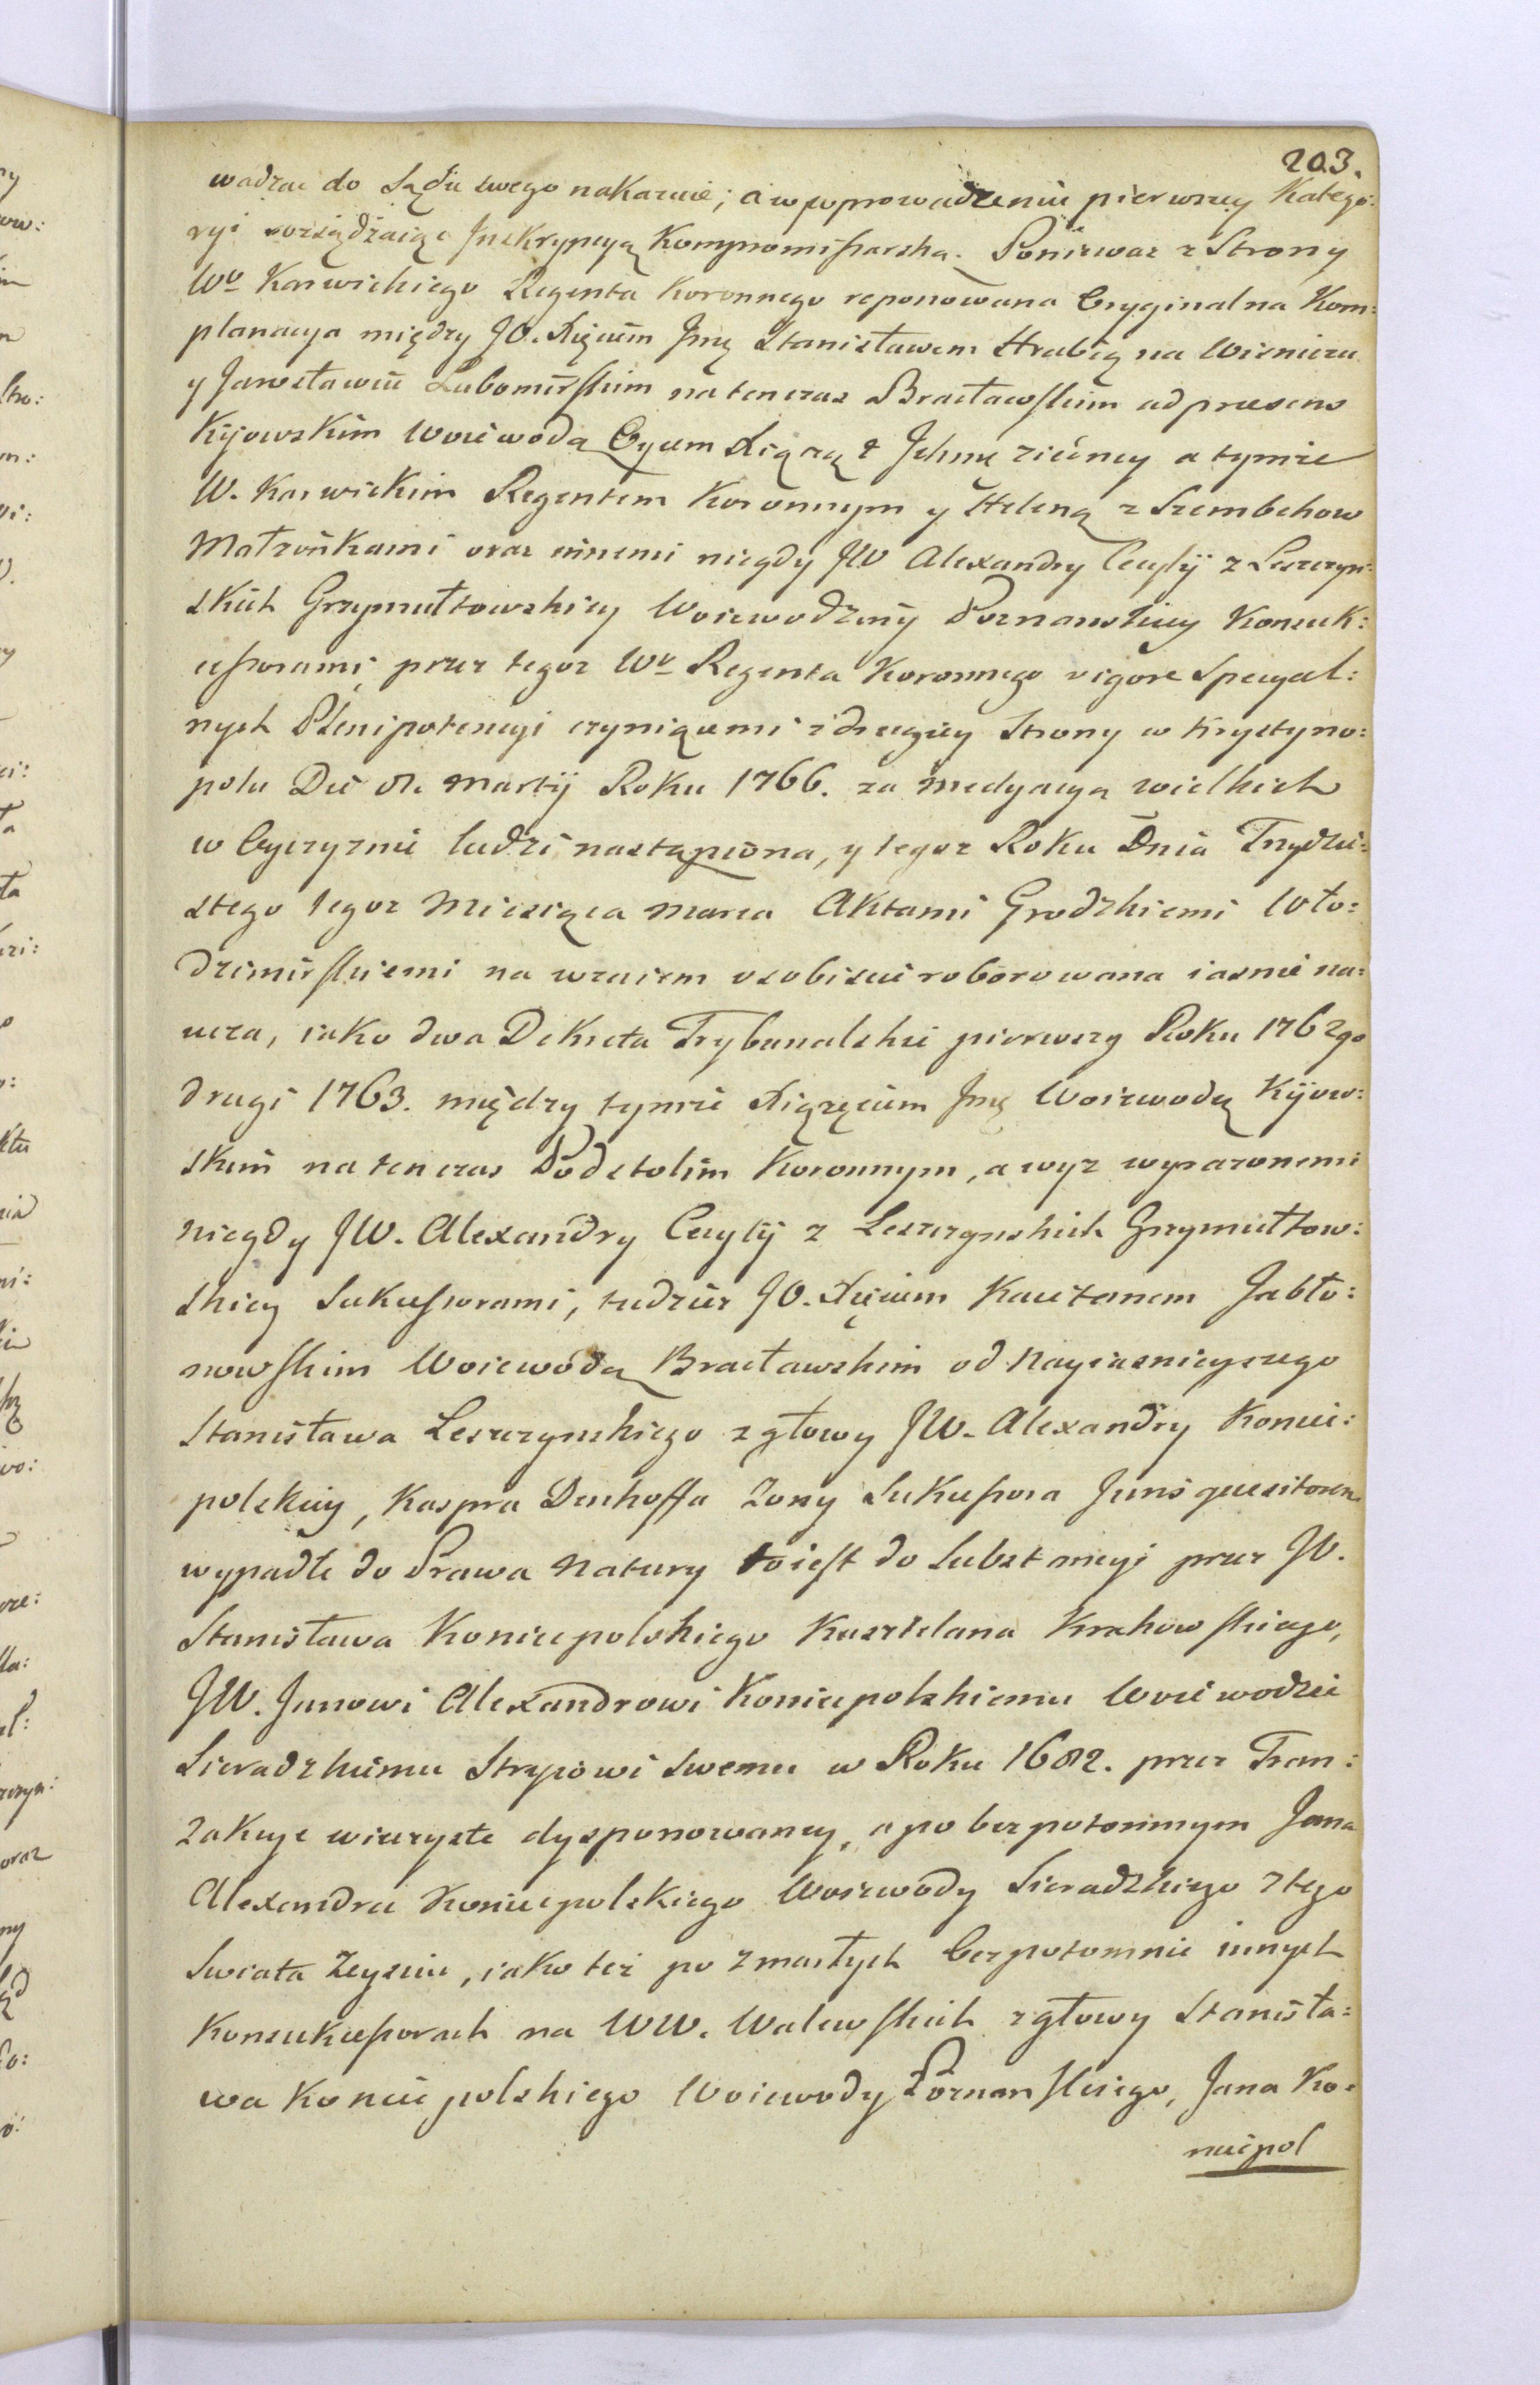 203.
wadzac do Sądu swego nakazuie; a w wprowadzeniu pierwszey Katego:
ryi rozsądzaiąc Inskrypcyą Kompromissarską. Ponieważ z Strony
Wo Karwickiego Regenta Koronnego reponowana Oryginalna Kom:
planacya między JO. Xięciem Jmę Stanisławem Hrabią na Wisniczu
y Jarosławiu Lubomirskim na ten czas Bracławskim ad præsens
Kijowskim Woiewodą Oycem Xiązą z Jchmę ziedney a tymże
W. Karwickim Regentem Koronnym y Heleną z Szembekow
Małżonkami oraz innemi niegdy JW Alexandry Cecylij z Leszczyn:
skich Grzymułtowskiey Woiewodziny Poznanskiey Konsuk:
cessorami przez tegoz Wo Regenta Koronnego vigore Specyal:
nych Plenipotencyi czyniącemi z drugiey Strony w Krystyno:
polu Die 8. Martij Roku 1766. za medyacyą wielkich
w Oyczyznie ludzi nastąpiona, y tegoz Roku Dnia Trzydzie:
stego tegoz Miesiąca Marca Aktami Grodzkiemi Wło:
dzimirskiemi na wzaiem osobiscie roborowana iasnie na:
ucza, iako dwa Dekreta Trybunalskie pierwszy Roku 1762go
drugi 1763. między tymże Xiązęciem Jmę Woiewodą Kijow:
skim na ten czas Podstolim Koronnym, a wyz wyrazonemi
niegdy JW. Alexandry Cecylij z Leszczynskich Grzymułtow:
skiey Sukcessorami, tudzież JO. Xięciem Kaietanem Jabło:
nowskim Woiewodą Bracławskim od Nayiasnieyszego
Stanisława Leszczynskiego z głowy JW. Alexandry Koniec:
polskiey, Kaspra Denhoffa Zony Sukcessora Juris quæsitorem
wypadłe do Prawa Natury to iest do Substancyi przez JW.
Stanisława Koniecpolskiego Kasztelana Krakowskiego,
JW. Janowi Alexandrowi Koniecpolskiemu Woiewodzie
Sieradzkiemu Stryiowi swemu w Roku 1682. przez Tran:
zakcye wieczyste dysponowaney, a po bezpotomnym Jana
Alexandra Koniecpolskiego Woiewody Sieradzkiego z tego
Swiata Zeysciu, iako też po zmarłych bezpotomnie innych
Konsukcessorach na WW. Walewskich z głowy Stanisła:
wa Koniecpolskiego Woiewody Poznanskiego, Jana Ko:
niecpol